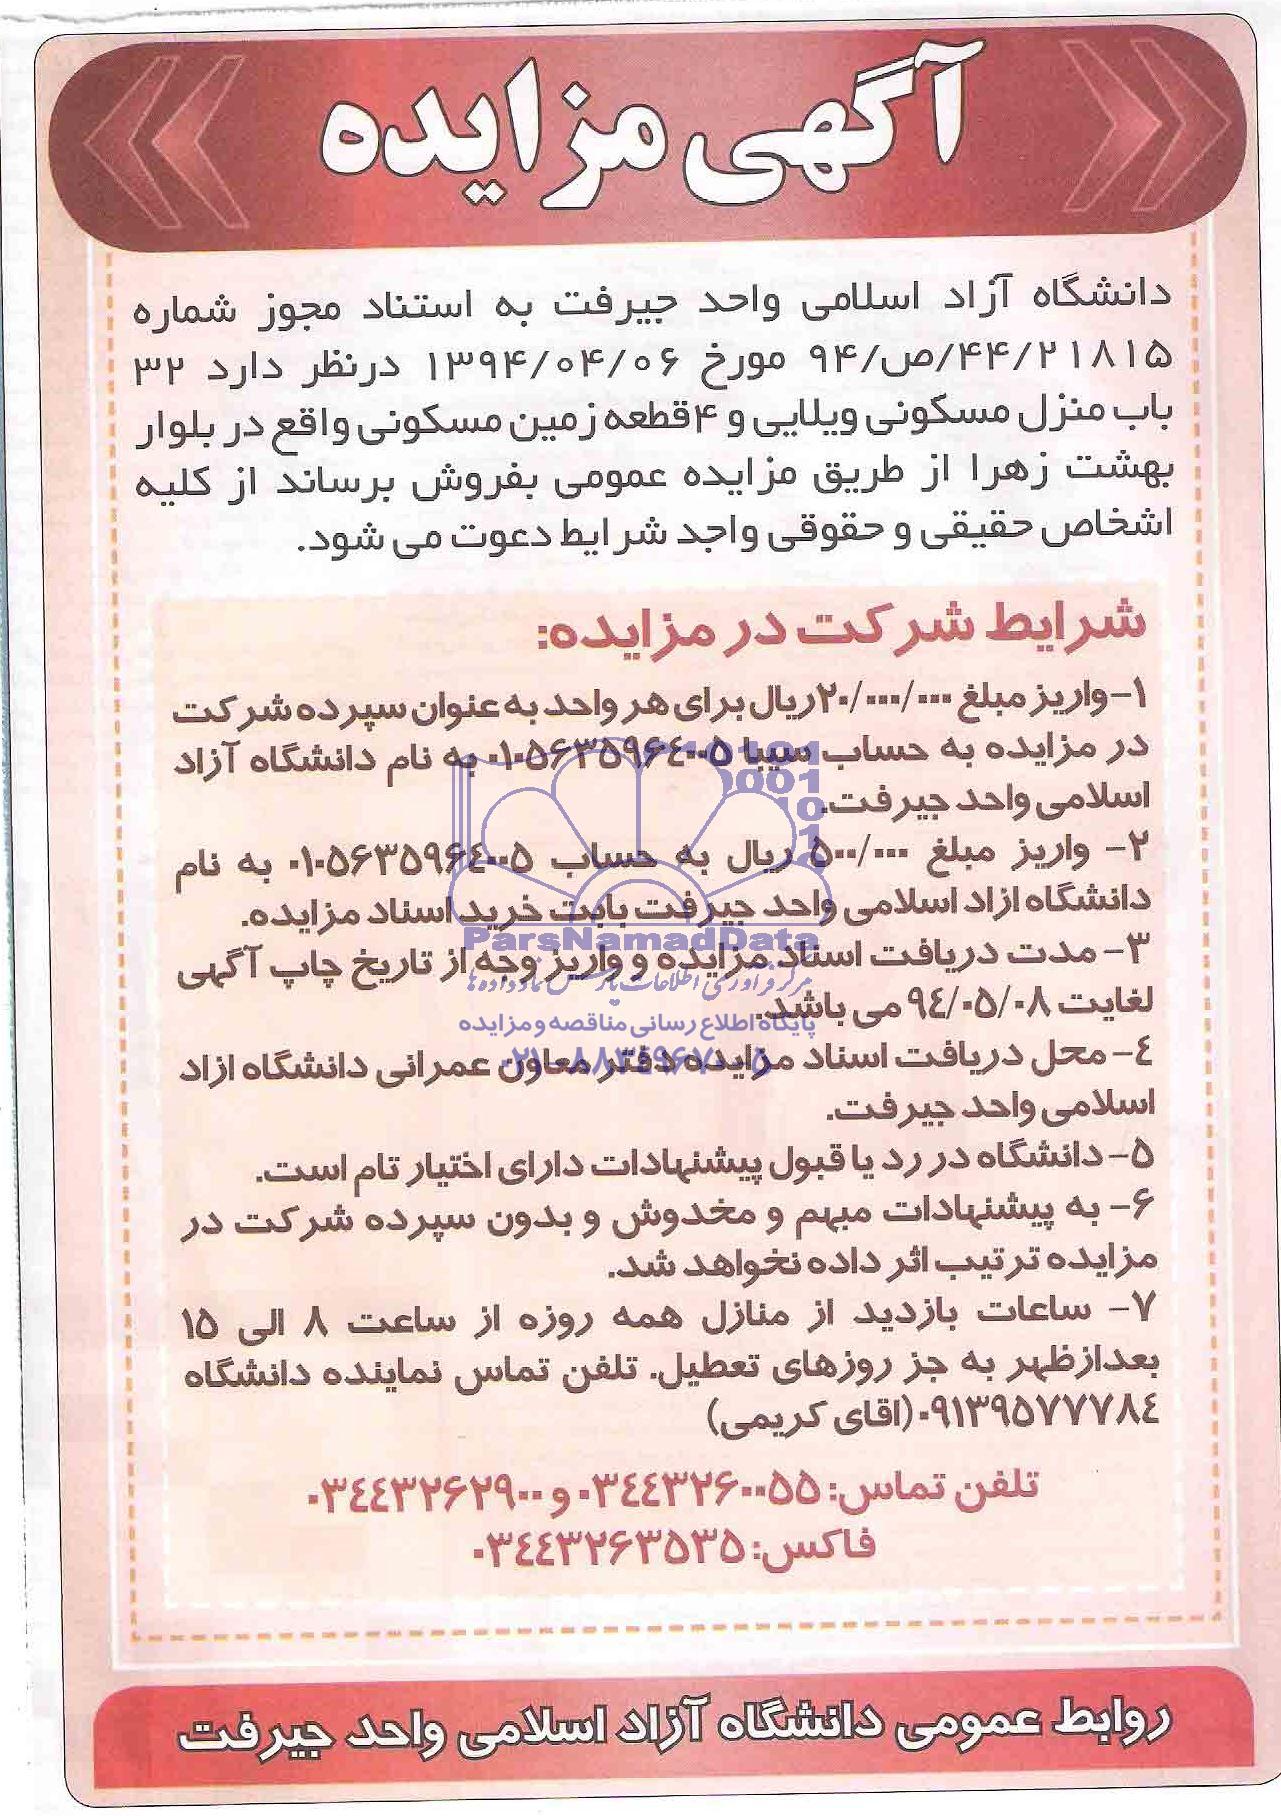 آگهی مزایده
دانشگاه آزاد اسلامی واحد جیرفت به استناد مجوز شماره
۹۴/ص/۴۴/۲۱۸۱۵ مورخ ۱۳۹۴/۰۴/۰۶ درنظر دارد ۳۲
باب منزل مسکونی ویلایی و ۴ قطعه زمین مسکونی واقع در بلوار
بهشت زهرا از طریق مزایده عمومی بفروش برساند از کلیه
اشخاص حقیقی و حقوقی واجد شرایط دعوت می شود.
شرایط شرکت در مزایده:
۱-واریز مبلغ ۲۰/۰۰۰/۰۰۰ریال برای هر واحد به عنوان سپرده شرکت
در مزایده به حساب سیبا ۰۱۰۵۶۳۵۹۶۴۰۰۵ به نام دانشگاه آزاد
اسلامی واحد جیرفت.
۲- واریز مبلغ ۵۰۰/۰۰۰ ریال به حساب ۰۱۰۵۶۳۵۹۶۴۰۰۵ به نام
دانشگاه ازاد اسلامی واحد جیرفت بابت خرید اسناد مزایده.
ParsNamadData
۳- مدت دریافت اسناد مزایده و واریز وجه از تاریخ چاپ آگهی
مرکز فرآوری اطلاعات پارس نماد داده ها
لغایت ۹۴/۰۵/۰۸ می باشد.
پایگاه اطلاع رسانی مناقصه و مزایده
۴- محل دریافت اسناد مزایده دفتر معاون عمرانی دانشگاه ازاد
۰۲۱-۸۸۳۴۹۶۷۰-۵
اسلامی واحد جیرفت.
۵- دانشگاه در رد یا قبول پیشنهادات دارای اختیار تام است.
۶- به پیشنهادات مبهم و مخدوش و بدون سپرده شرکت در
مزایده ترتیب اثر داده نخواهد شد.
۷- ساعات بازدید از منازل همه روزه از ساعت ۸ الی ۱۵
بعدازظهر به جز روزهای تعطیل. تلفن تماس نماینده دانشگاه
۰۹۱۳۹۵۷۷۷۸۴(اقای کریمی)
تلفن تماس: ۰۳۴۴۳۲۶۰۰۵۵ و ۰۳۴۴۳۲۶۲۹۰۰
فاکس: ۰۳۴۴۳۲۶۳۵۳۵
روابط عمومی دانشگاه آزاد اسلامی واحد جیرفت